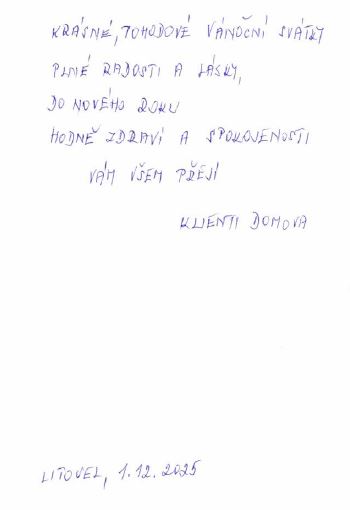 KRÁSNÉ, POHODOVÉ VÁNOČNÍ SVÁTKY
PLNÉ RADOSTI A LÁSKY,
DO NOVÉHO ROKU
HODNĚ ZDRAVÍ A SPOKOJENOSTI
VÁM VŠEM PŘEJÍ
KLIENTI DOMOVA
LITOVEL, 1.12.2025